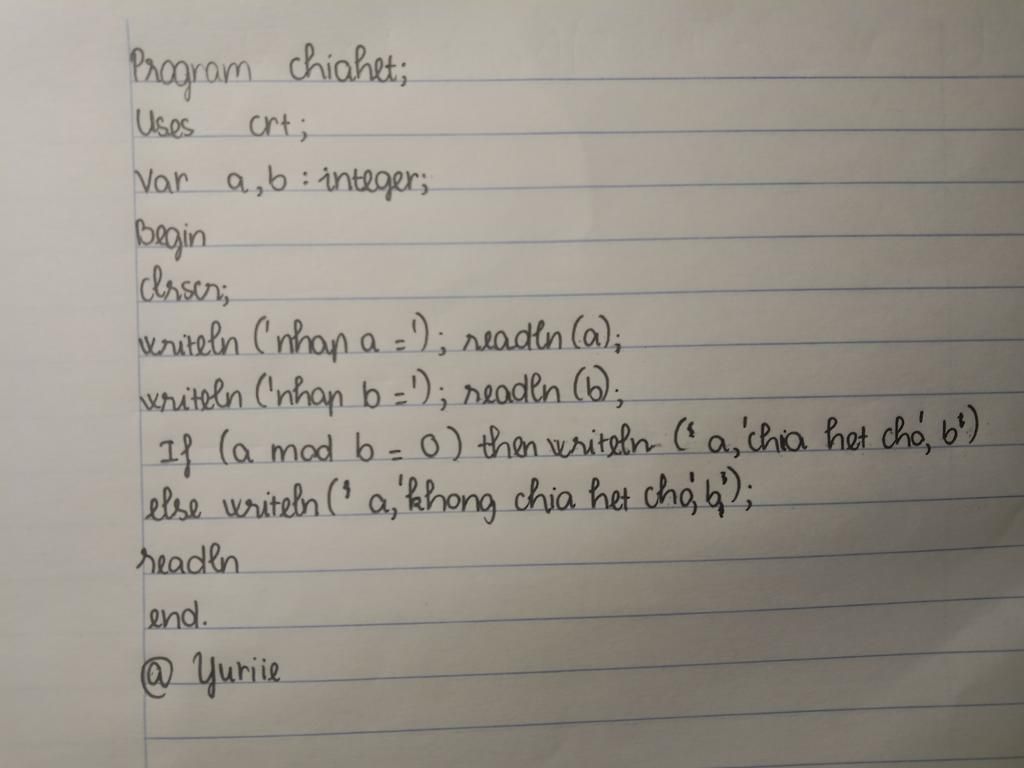 Program chiahet;
Uses crt;
Var a,b : integer;
Begin
clrscr;
writeln ('nhap a ='); readln (a);
writeln ('nhap b ='); readln (b);
If (a mod b = 0) then writeln (' a,'chia het cho', b')
else writeln (' a,'khong chia het cho', b');
readln
end.
@ Yuriie